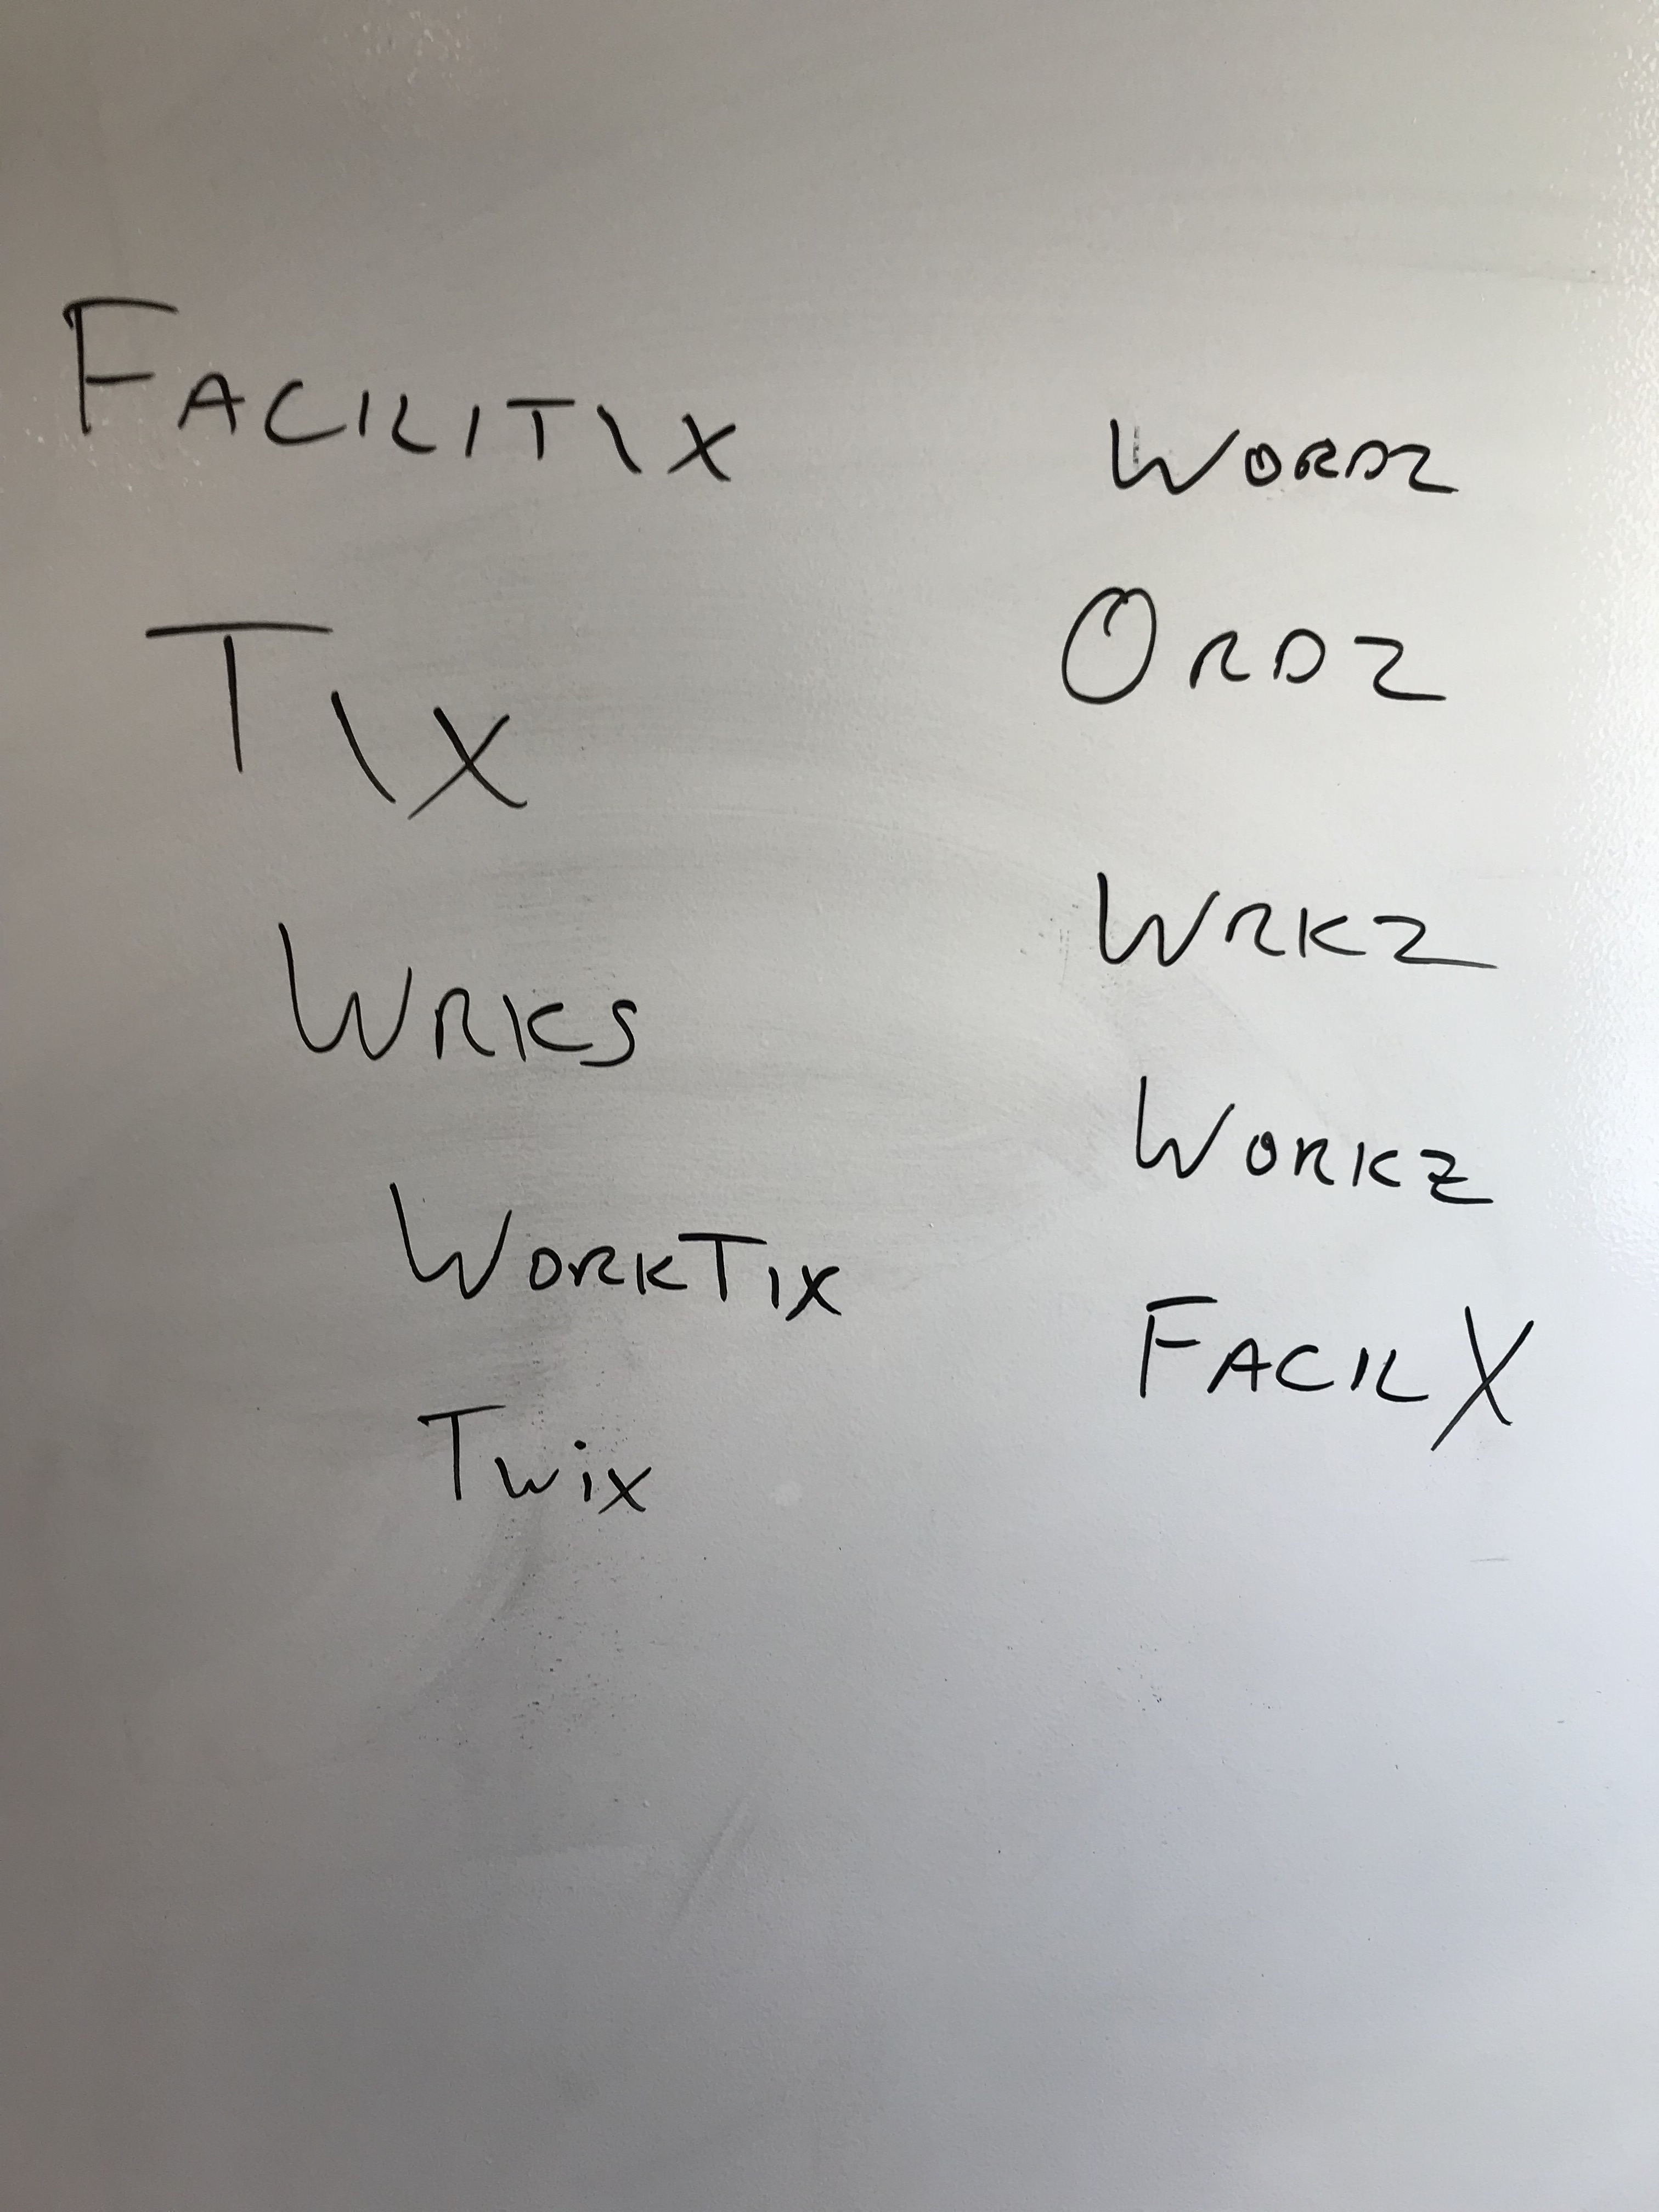 FACILITIX
TIX
WRKS
WORKTIX
Twix
WORDZ
ORDZ
WRKZ
WORKZ
FACILX